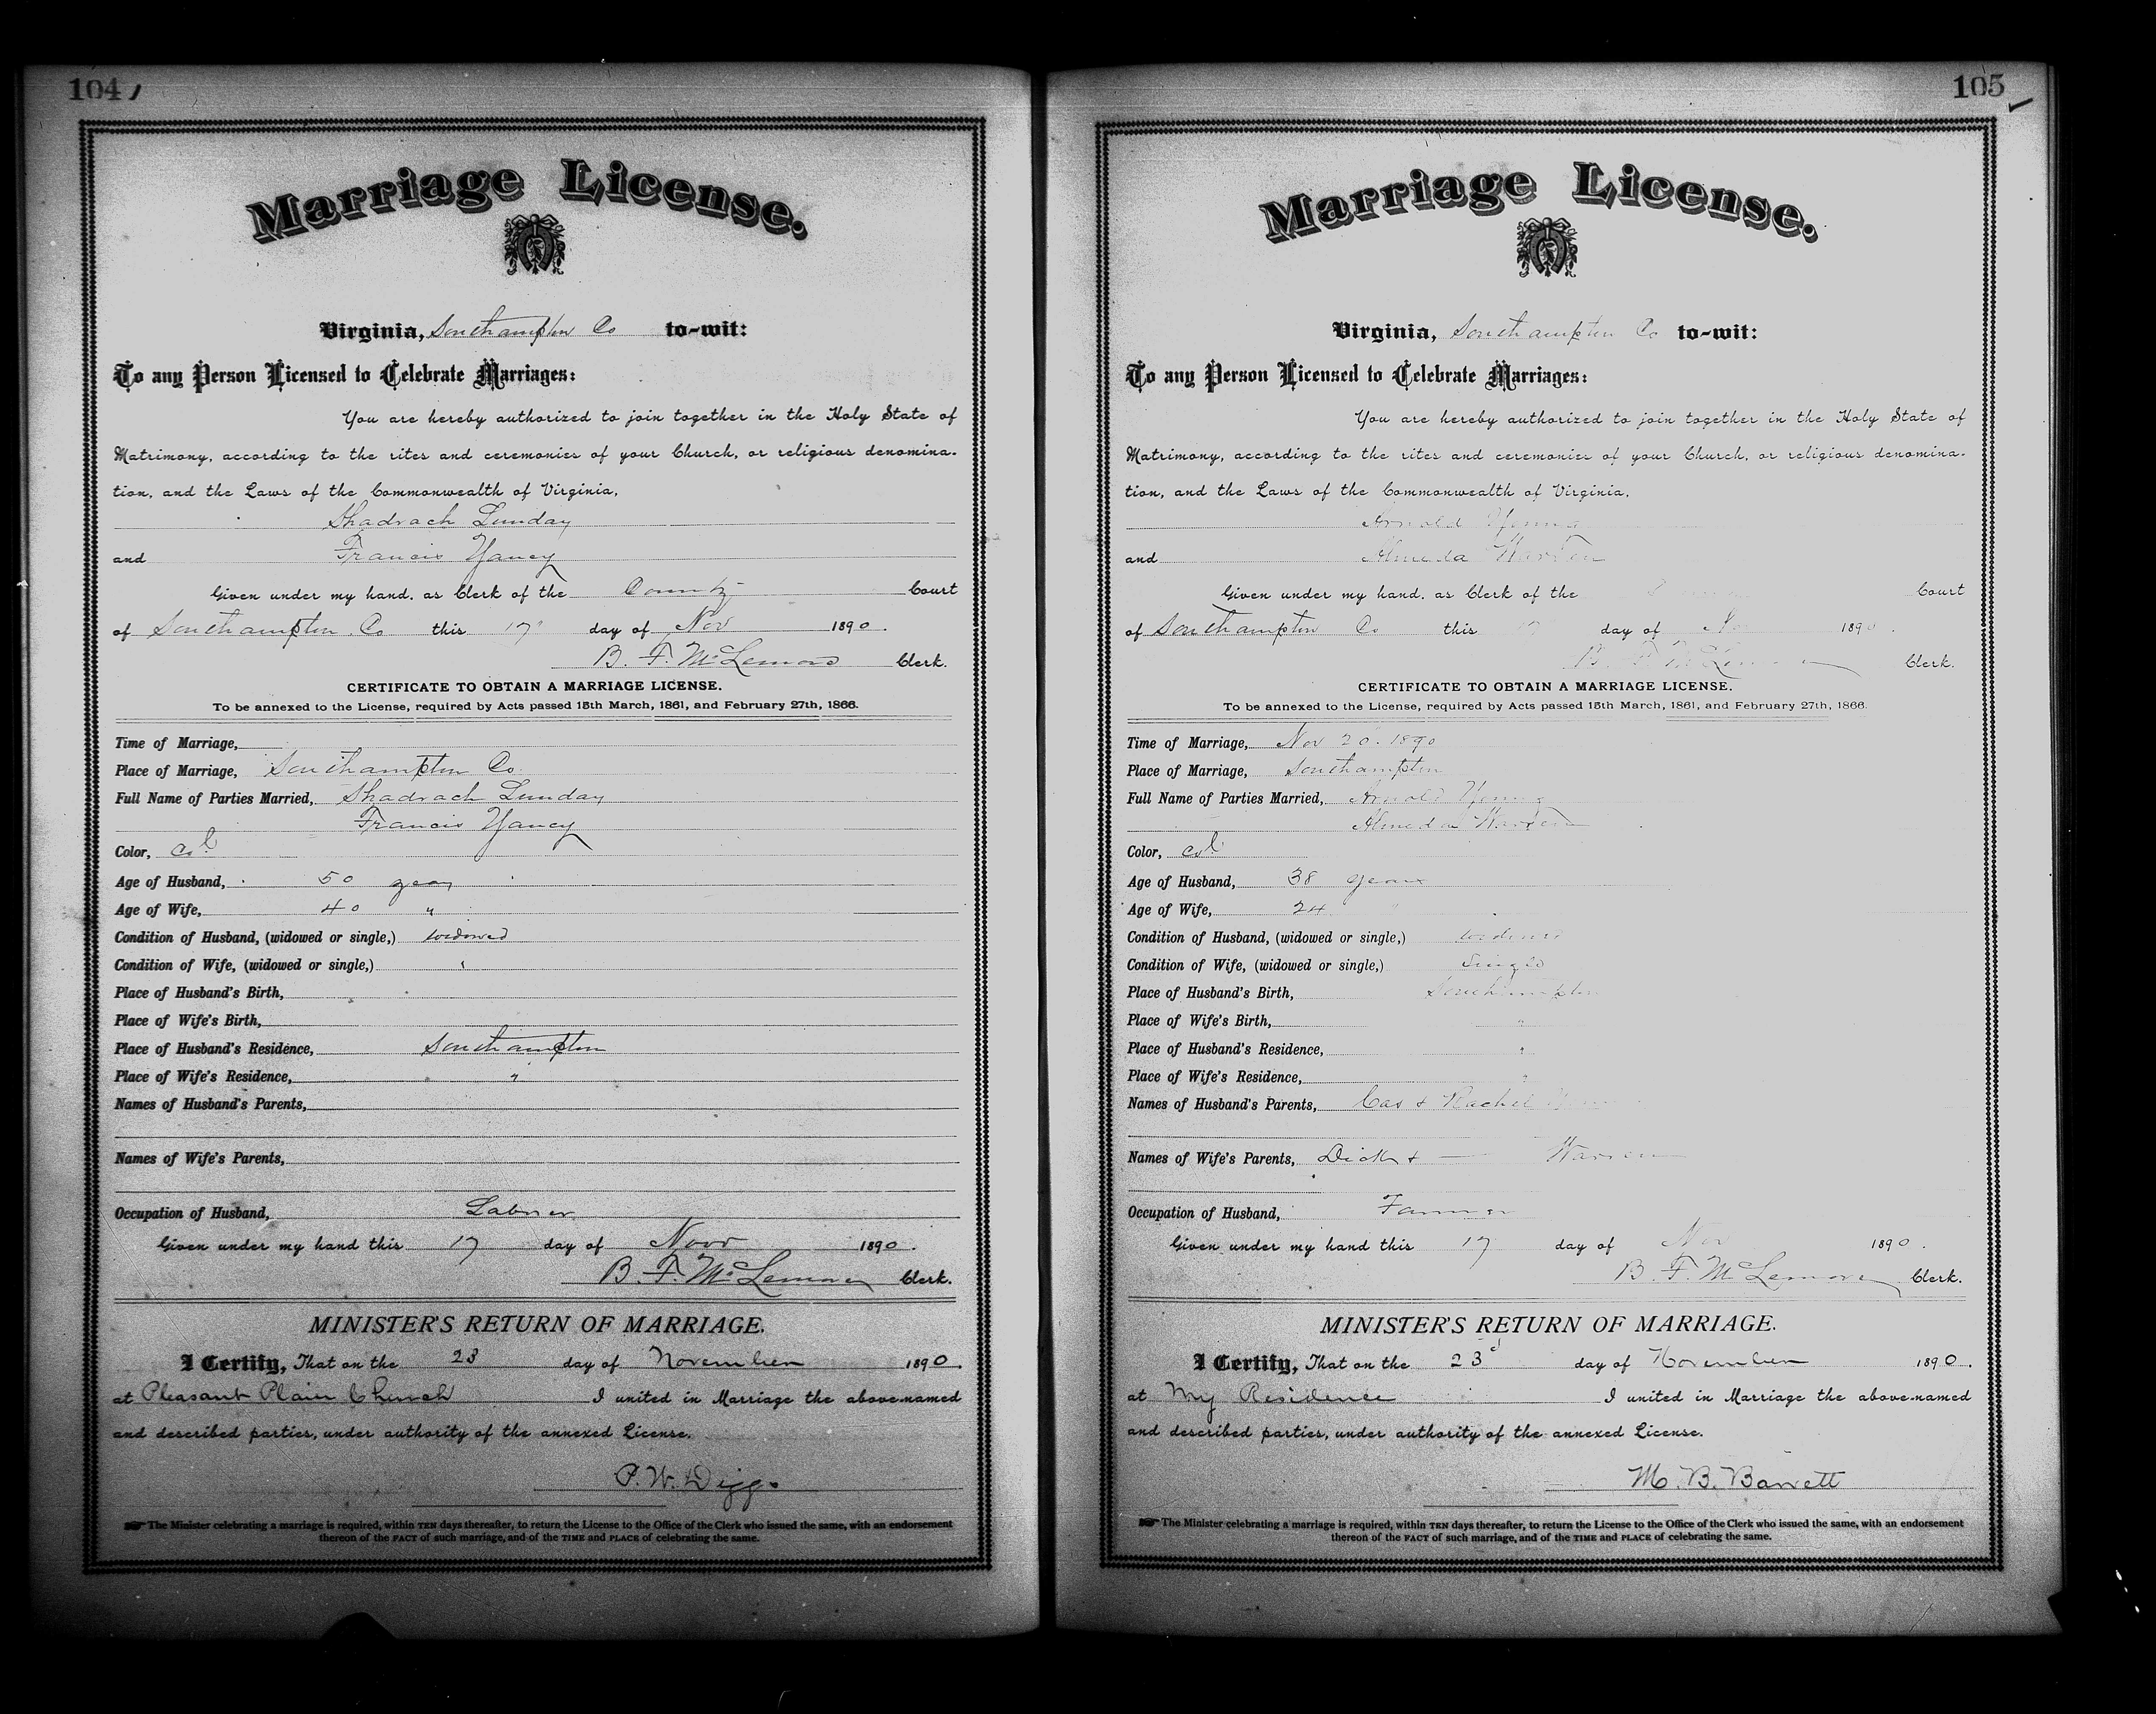 104
Marriage License.
Virginia, Southampton Co to-wit:
To any Person Licensed to Celebrate Marriages:
You are hereby authorized to join together in the Holy State of
Matrimony, according to the rites and ceremonies of your Church, or religious denomina-
tion, and the Laws of the Commonwealth of Virginia,
Shadrach Lunday
and Francis Yancy
Given under my hand, as Clerk of the County Court
of Southampton Co this 17" day of Nov 1890.
B. F. McLemore Clerk.
CERTIFICATE TO OBTAIN A MARRIAGE LICENSE.
To be annexed to the License, required by Acts passed 15th March, 1861, and February 27th, 1866.
Time of Marriage,
Place of Marriage, Southampton Co
Full Name of Parties Married, Shadrach Lunday
Francis Yancy
Color, Col
Age of Husband, 50 years
Age of Wife, 40 "
Condition of Husband, (widowed or single,) widowed
Condition of Wife, (widowed or single,) "
Place of Husband's Birth,
Place of Wife's Birth,
Place of Husband's Residence, Southampton
Place of Wife's Residence, "
Names of Husband's Parents,
Names of Wife's Parents,
Occupation of Husband, Laborer
Given under my hand this 17 day of Novr 1890.
B. F. McLemore Clerk.
MINISTER'S RETURN OF MARRIAGE.
I Certify, That on the 23 day of November 1890.
at Pleasant Plain Church I united in Marriage the above-named
and described parties, under authority of the annexed License.
P. W. Diggs
☞ The Minister celebrating a marriage is required, within TEN days thereafter, to return the License to the Office of the Clerk who issued the same, with an endorsement
thereon of the FACT of such marriage, and of the TIME and PLACE of celebrating the same.
105
Marriage License.
Virginia, Southampton Co to-wit:
To any Person Licensed to Celebrate Marriages:
You are hereby authorized to join together in the Holy State of
Matrimony, according to the rites and ceremonies of your Church, or religious denomina-
tion, and the Laws of the Commonwealth of Virginia,
Arnold Young
and Almeda Warren
Given under my hand, as Clerk of the Court
of Southampton Co this 17 day of Nov 1890.
B. F. McLemore Clerk.
CERTIFICATE TO OBTAIN A MARRIAGE LICENSE.
To be annexed to the License, required by Acts passed 15th March, 1861, and February 27th, 1866.
Time of Marriage, Nov 20. 1890
Place of Marriage, Southampton
Full Name of Parties Married, Arnold Young
Almeda Warren
Color, Col
Age of Husband, 38 years
Age of Wife, 24 "
Condition of Husband, (widowed or single,) widowed
Condition of Wife, (widowed or single,) Single
Place of Husband's Birth, Southampton
Place of Wife's Birth, "
Place of Husband's Residence, "
Place of Wife's Residence, "
Names of Husband's Parents, Cas + Rachel
Names of Wife's Parents, Dick + — Warren
Occupation of Husband, Farmer
Given under my hand this 17 day of Nov 1890.
B. F. McLemore Clerk.
MINISTER'S RETURN OF MARRIAGE.
I Certify, That on the 23d day of November 1890.
at My Residence I united in Marriage the above-named
and described parties, under authority of the annexed License.
M. B. Barrett
☞ The Minister celebrating a marriage is required, within TEN days thereafter, to return the License to the Office of the Clerk who issued the same, with an endorsement
thereon of the FACT of such marriage, and of the TIME and PLACE of celebrating the same.